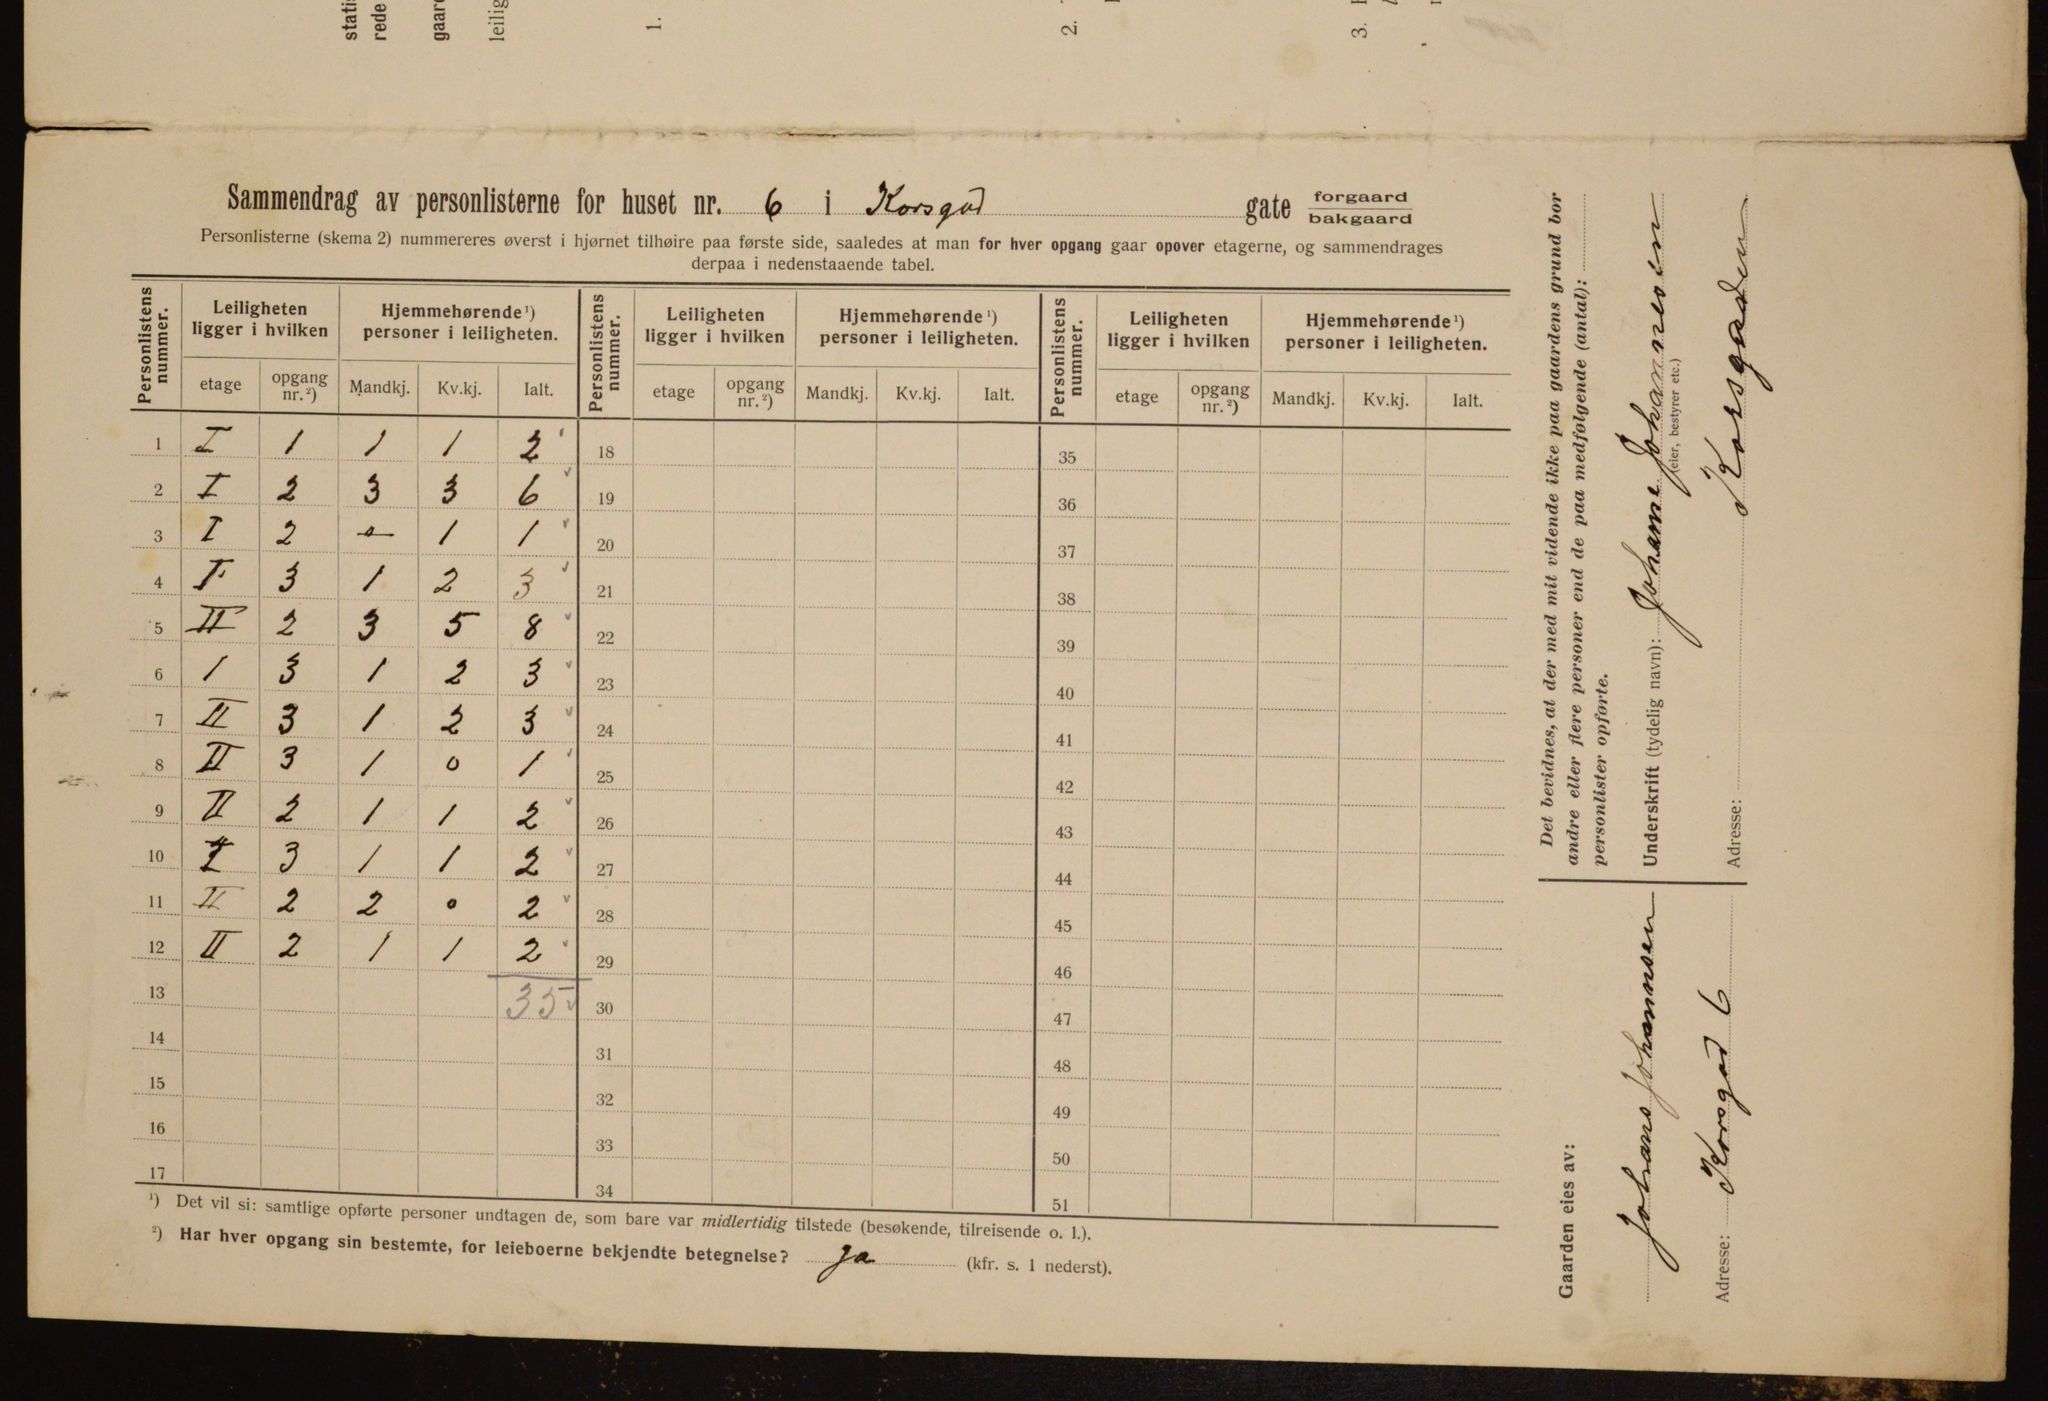 stati
rede
gaard
leilig
1.
2.
3.
Sammendrag av personlisterne for huset nr. 6 i Korsgad gate forgaard
bakgaard
Personlisterne (skema 2) nummereres øverst i hjørnet tilhøire paa første side, saaledes at man for hver opgang gaar opover etagerne, og sammendrages
derpaa i nedenstaaende tabel.
Personlistens nummer. Leiligheten ligger i hvilken Hjemmehørende¹) personer i leiligheten. Personlistens nummer. Leiligheten ligger i hvilken Hjemmehørende¹) personer i leiligheten. Personlistens nummer. Leiligheten ligger i hvilken Hjemmehørende¹) personer i leiligheten.
etage opgang nr.²) Mandkj. Kv.kj. Ialt. etage opgang nr.²) Mandkj. Kv.kj. Ialt. etage opgang nr.²) Mandkj. Kv.kj. Ialt.
1 I 1 1 1 2 18 35
2 I 2 3 3 6 19 36
3 I 2 0 1 1 20 37
4 I 3 1 2 3 21 38
5 II 2 3 5 8 22 39
6 1 3 1 2 3 23 40
7 II 3 1 2 3 24 41
8 II 3 1 0 1 25 42
9 II 2 1 1 2 26 43
10 3 1 1 2 27 44
11 II 2 2 0 2 28 45
12 II 2 1 1 2 29 46
13 35 30 47
14 31 48
15 32 49
16 33 50
17 34 51
¹) Det vil si: samtlige opførte personer undtagen de, som bare var midlertidig tilstede (besøkende, tilreisende o. l.).
²) Har hver opgang sin bestemte, for leieboerne bekjendte betegnelse? Ja (kfr. s. 1 nederst).
Det bevidnes, at der med mit vidende ikke paa gaardens grund bor
andre eller flere personer end de paa medfølgende (antal):
personlister opførte.
Underskrift (tydelig navn): Johanne Johannesen
(eier, bestyrer etc.)
Adresse: Korsgaden
Gaarden eies av:
Johans Johannsen
Adresse: Korsgad 6